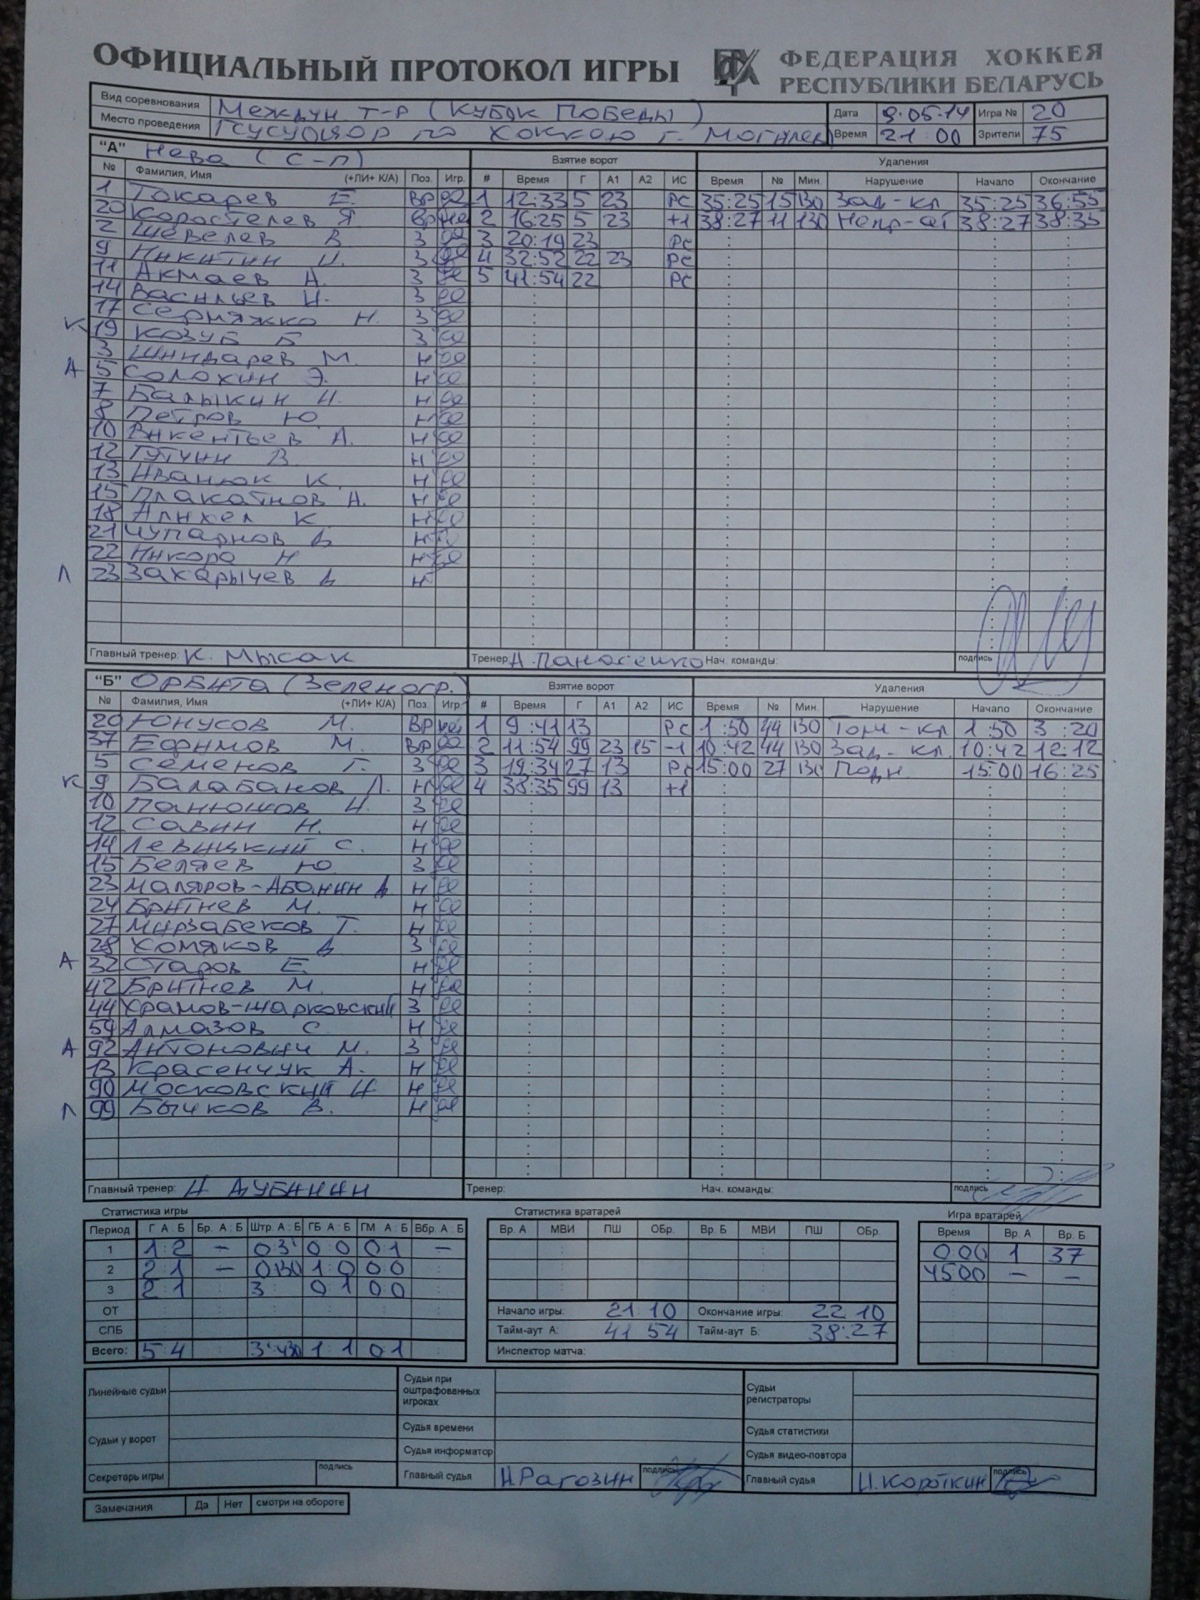 ОФИЦИАЛЬНЫЙ ПРОТОКОЛ ИГРЫ ФЕДЕРАЦИЯ ХОККЕЯ
РЕСПУБЛИКИ БЕЛАРУСЬ
Вид соревнования Междун т-р (Кубок Победы) Дата 9.05.14 Игра № 20
Место проведения по хоккею г. Могилев Время 21:00 Зрители 75
"А" Нева (С-П) Взятие ворот Удаления
№ Фамилия, Имя (+ЛИ+ К/А) Поз. Игр. # Время Г А1 А2 ИС Время № Мин. Нарушение Начало Окончание
1 Токарев Е. Вр да 1 12:33 5 23 РС 35:25 15 130 Зад-кл 35:25 36:55
20 Коростелев Я Вр не 2 16:25 5 23 +1 38:27 11 130 38:27 38:35
2 Шевелев В З да 3 20:19 23 РС
9 Никитин И. З да 4 32:52 22 23 РС
11 Акмаев А. З да 5 41:54 22 РС
14 Васильев И. З да
17 Сермяжко Н. З да
К 19 Козуб Б З да
3 Шиндарев М. Н да
А 5 Солохин Э. Н да
7 Балыкин И. Н да
8 Петров Ю Н да
10 Викентьев А. Н да
12 Тутчин В. Н да
13 Иванюк К. Н да
15 Плакатнов А. Н да
18 Алихел К Н да
21 Чупарнов Д Н
22 Никора Н Н да
Л 23 Захарычев Д Н
Главный тренер: К. Мысак Тренер: А. Панасенко Нач. команды: подпись
"Б" Орбита (Зеленогр.) Взятие ворот Удаления
№ Фамилия, Имя (+ЛИ+ К/А) Поз. Игр. # Время Г А1 А2 ИС Время № Мин. Нарушение Начало Окончание
20 Юнусов М. Вр не 1 9:41 13 РС 1:50 44 130 Толч-кл 1:50 3:20
37 Ефимов М. Вр да 2 11:54 99 23 15 -1 10:42 44 130 Зад-кл 10:42 12:12
5 Семенов Г. З да 3 19:34 27 13 РС 15:00 27 130 Подн. 15:00 16:25
К 9 Балабанов Л. Н да 4 38:35 99 13 +1
10 Панюшов И. З да
12 Савин Н. Н да
14 Левицкий С. Н да
15 Беляев Ю З да
23 Маляров-Абанин Д Н да
24 Бритнев М. Н да
27 Мирзабеков Т. Н да
28 Хомяков Д З да
А 32 Старов Е. Н да
42 Бритнев М. Н да
44 Храмов-Шарковский З да
59 Алмазов С Н да
А 92 Антонович М. З да
13 Красенчук А. Н да
90 Московский И Н да
Л 99 Бычков В. Н да
Главный тренер: Н Дубинин Тренер: Нач. команды: подпись
Статистика игры Статистика вратарей Игра вратарей
Период Г А : Б Бр. А : Б Штр. А : Б ГБ А : Б ГМ А : Б Вбр. А : Б Вр. А МВИ ПШ ОБр. Вр. Б МВИ ПШ ОБр. Время Вр. А Вр. Б
1 1:2 – 0:3 0:0 0:1 – 0:00 1 37
2 2:1 – 0:130 1:0 0:0 45:00 – –
3 2:1 3: 0:1 0:0
ОТ Начало игры: 21:10 Окончание игры: 22:10
СПБ Тайм-аут А: 41:54 Тайм-аут Б: 38:27
Всего: 5:4 3:430 1:1 0:1 Инспектор матча:
Линейные судьи Судьи при оштрафованных игроках Судьи регистраторы
Судьи у ворот Судья времени Судья статистики
Судья информатор Судья видео-повтора
Секретарь игры подпись Главный судья Н.Рагозин подпись Главный судья И.Короткин подпись
Замечания Да Нет смотри на обороте